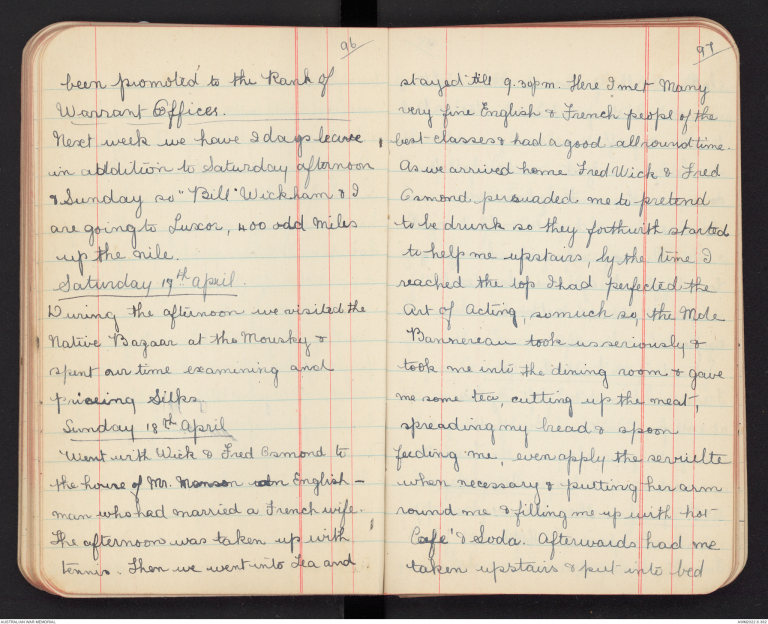 96
been promoted to the Rank of
Warrant Officer.
Next week we have 2 days leave,
in addition to Saturday afternoon
& Sunday so "Bill" Wickham & I
are going to Luxor, 400 odd miles
up the nile.
Saturday 17th April.
During the afternoon we visited the
Native Bazaar at the Mousky &
spent our time examining and
priceing Silks.
Sunday 18th April
Went with Wick & Fred Osmond to
the house of Mr. Monson an English-
man who had married a French wife.
The afternoon was taken up with
tennis. Then we went into Tea and
97
stayed till 9.30pm. Here I met Many
very fine English & French people of the
best classes & had a good allround time.
As we arrived home Fred Wick & Fred
Osmond persuaded me to pretend
to be drunk so they forthwith started
to help me upstairs, by the time I
reached the top I had perfected the
Art of Acting, so much so, the Mde
Bannereau took us seriously &
took me into the dining room & gave
me some tea, cutting up the meat,
spreading my bread & spoon
feeding me, even apply the serviette
when necessary & putting her arm
round me & filling me up with hot
Cafe' & Soda. Afterwards had me
taken upstairs & put into bed
AUSTRALIAN WAR MEMORIAL